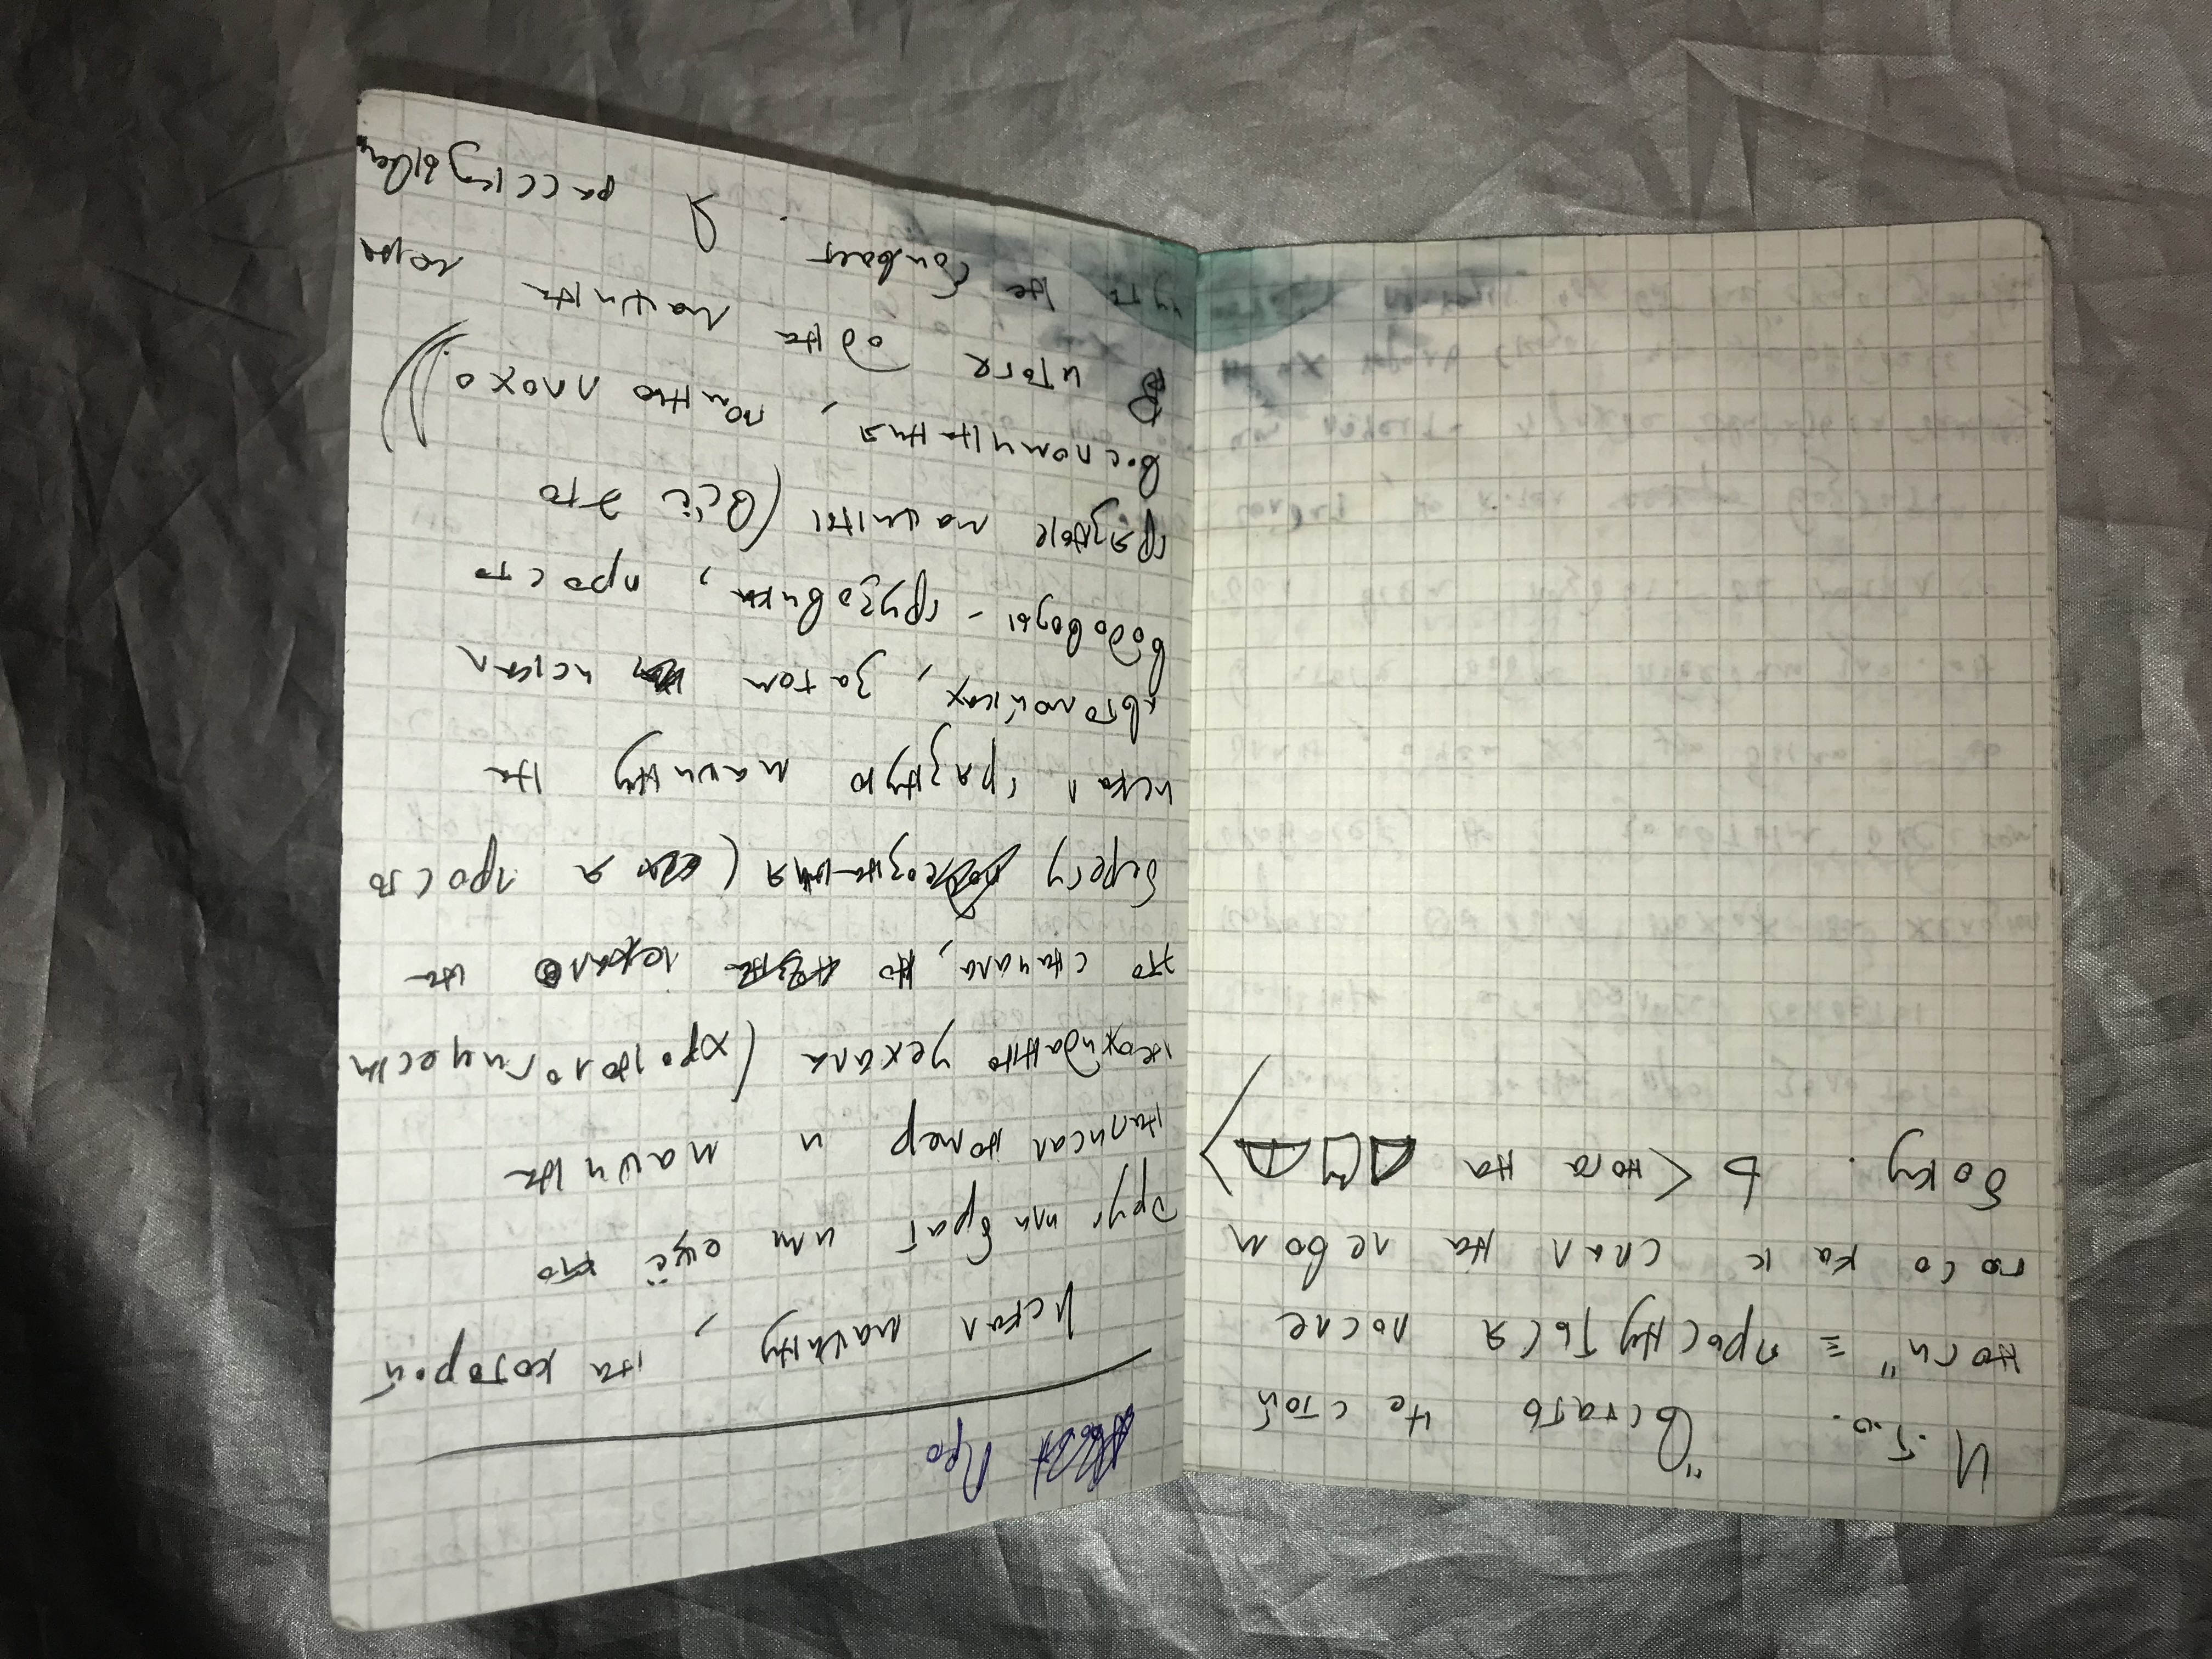 И.т.о. "Встать не с той
ноги" ≡ проснуться после
того как спал на левом
боку. Ь <нога на >
Про
Искал машину, на которой
друг или брат или ещё кто
написал номер и машина
неожиданно уехала (хронологически
это сначала, но лежало на
берегу подсознания ( я просто
искал грязную машину на
автомойках, затем искал
водовозы - грузовики, просто
грязные машины (всё это
воспоминания, помню плохо.))
В итоге одна машина меня
чуть не сбивает. Я рассказываю